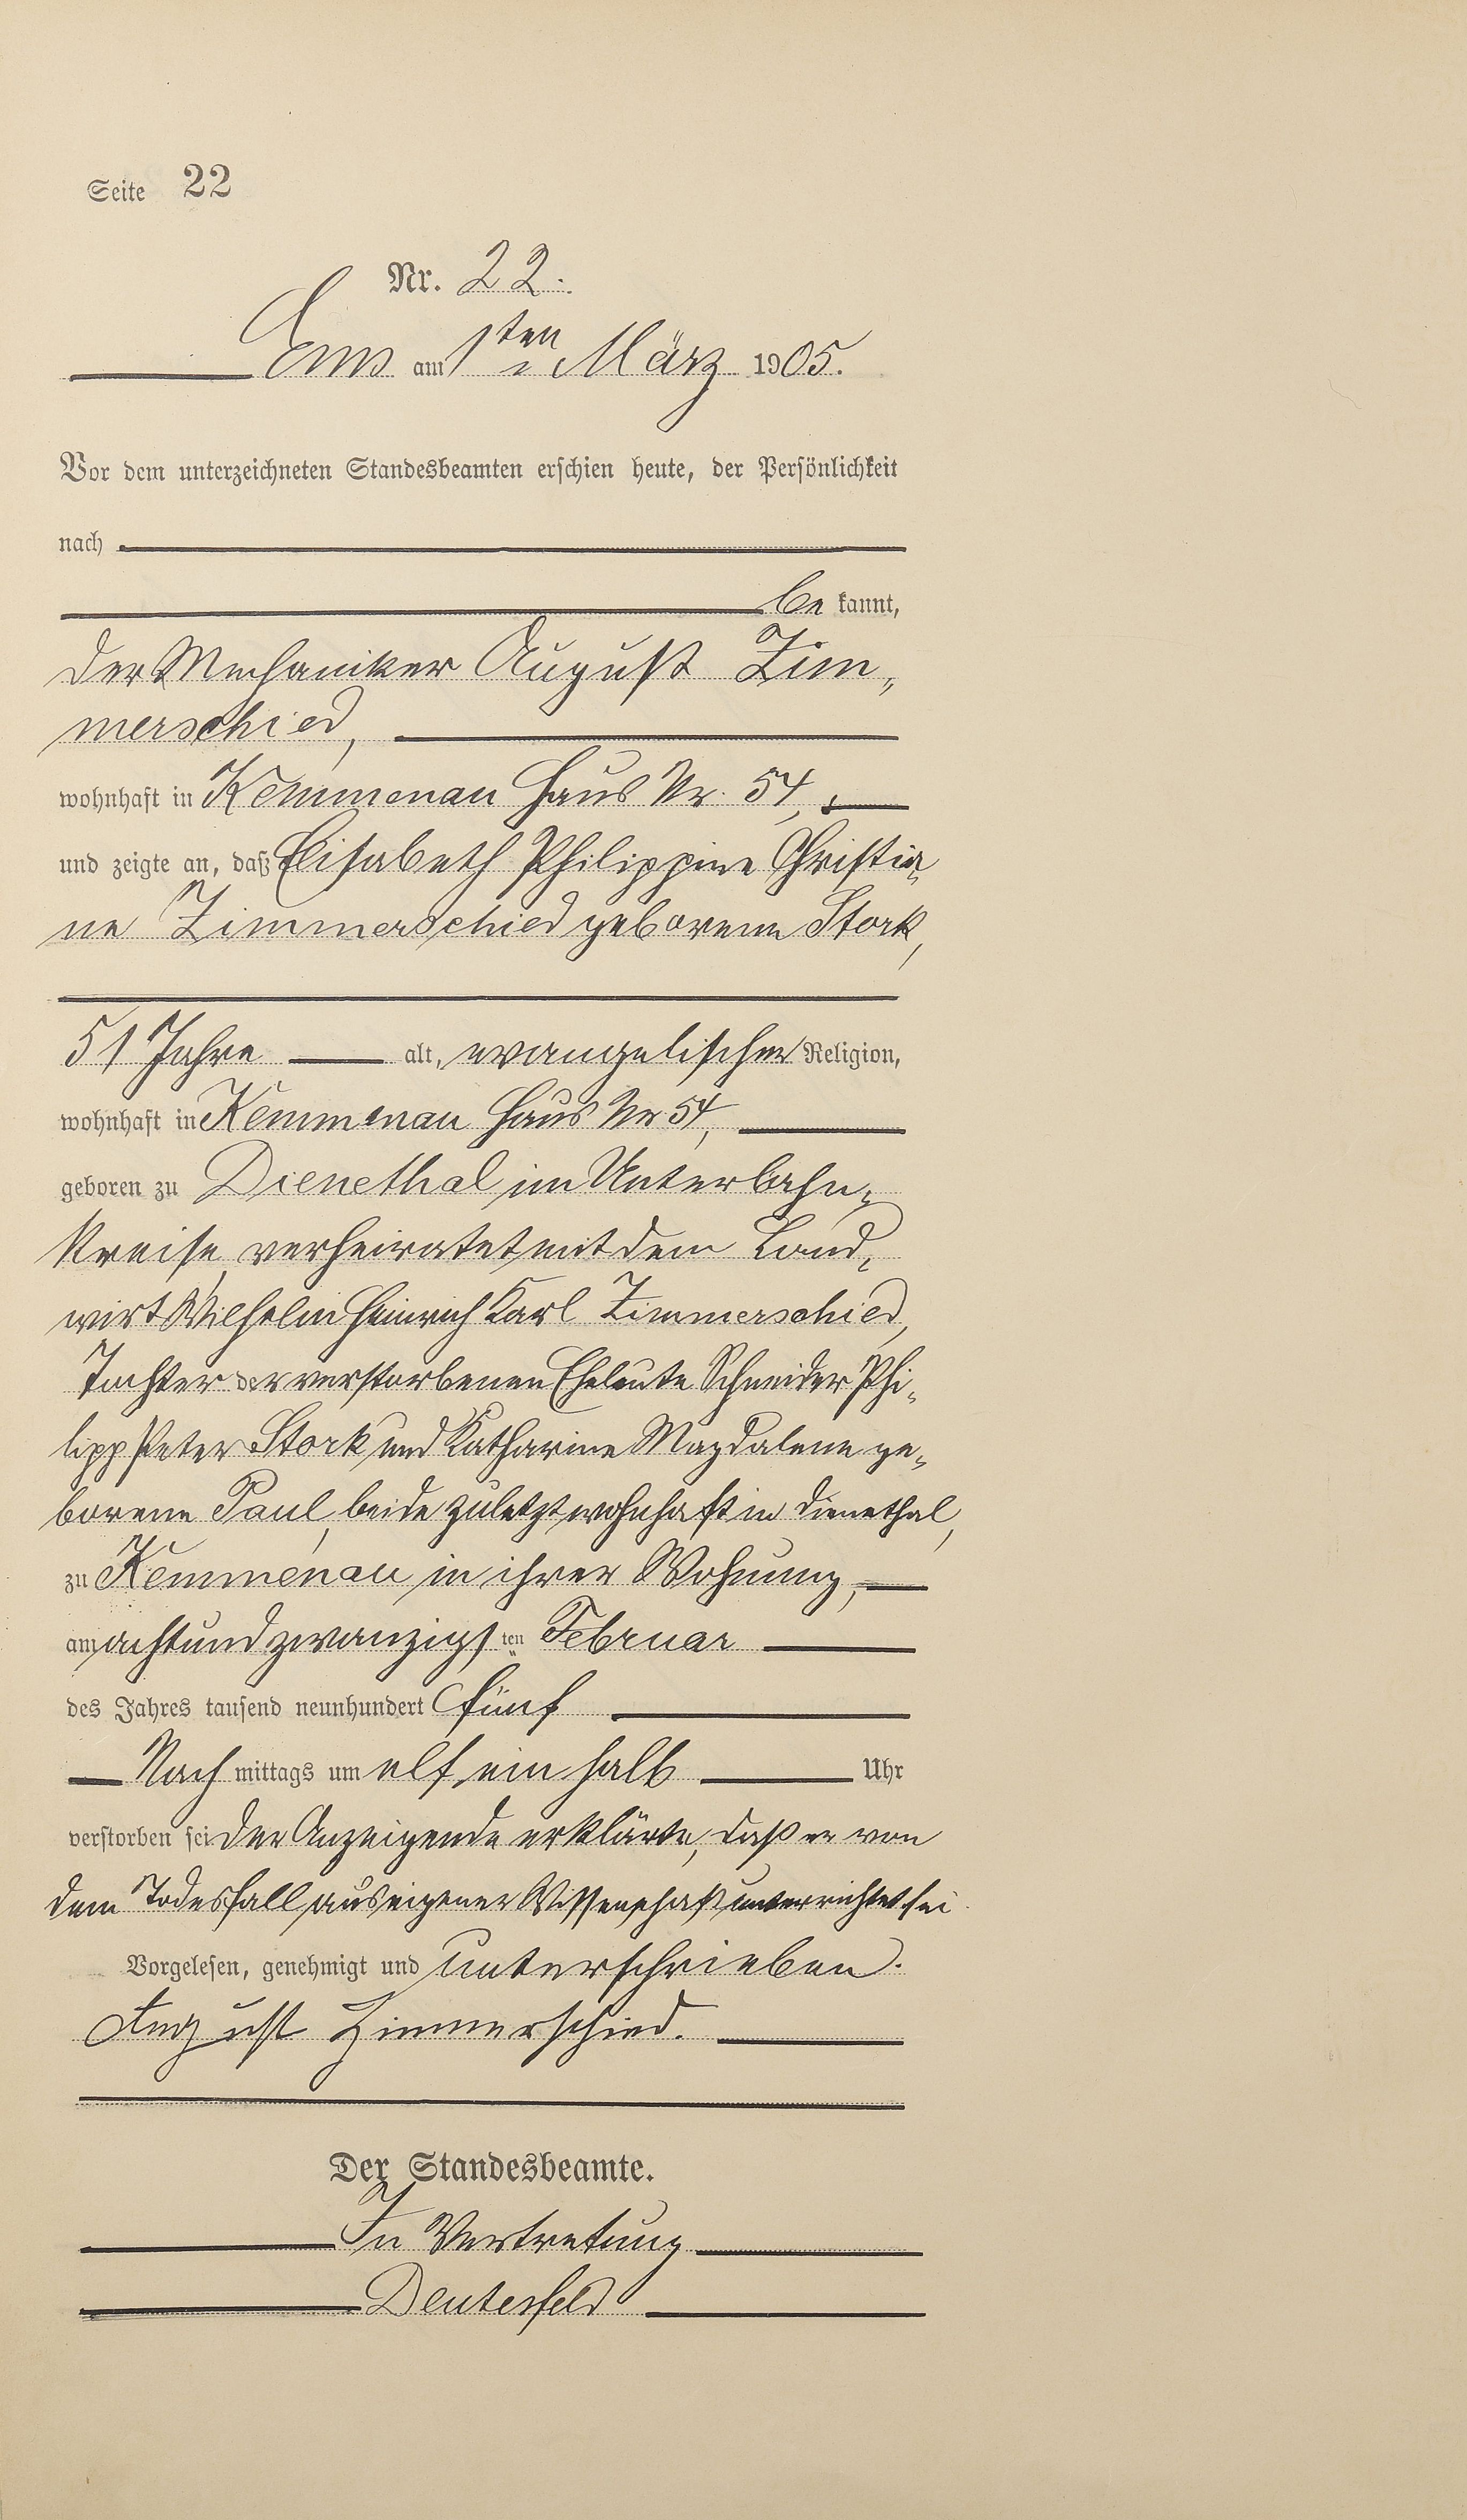 Seite 22
Nr. 22.
Ems am 1ten März 1905.
Vor dem unterzeichneten Standesbeamten erschien heute, der Persönlichkeit
nach
be kannt,
der Mechaniker August Zim„
merschied,
wohnhaft in Kemmenau Haus Nr. 54,
und zeigte an, daß Elisabeth Philippine Christia„
ne Zimmerschied geborene Stork,
51 Jahre alt, evangelischer Religion,
wohnhaft in Kemmenau Haus Nr. 54,
geboren zu Dienethal im Unterlahn„
kreise, verheiratet mit dem Land„
wirt Wilhelm Heinrich Karl Zimmerschied,
Tochter der verstorbenen Eheleute Schneider Phi„
lipp Peter Stork und Katharine Magdalene ge„
borene Paul, beide zuletzt wohnhaft in Dienethal,
zu Kemmenau in ihrer Wohnung,
am achtundzwanzigsten Februar
des Jahres tausend neunhundert fünf
Nach mittags um elf ein halb Uhr
verstorben sei. Der Anzeigende erklärte, daß er von
dem Todesfall aus eigener Wissenschaft unterrichtet sei.
Vorgelesen, genehmigt und unterschrieben.
August Zimmerschied.
Der Standesbeamte.
In Vertretung
Deutesfeld